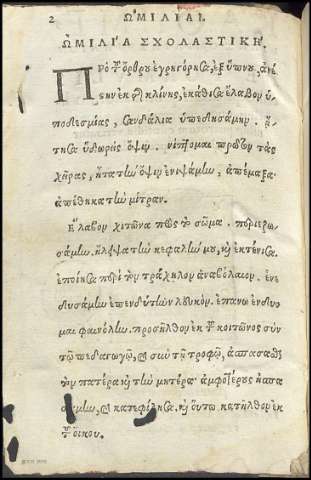 2 ὩΜΙΛΙΑΙ.
ὩΜΙΛΙΆ ΣΧΟΛΑΣΤΙΚΗ.
ΠΡὸ τοῦ ὄρθρου ἐγρηγόρησα, ἐξ ὕπνου, ἀνέ
στην ἐκ τῆς κλίνης, ἐκάθισα ἔλαβον ὑ
ποδεσμίας, σανδάλια ὑπεδησάμην. ᾔ
τησα ὕδωρ εἰς ὄψιν. νίπτομαι πρῶτον τὰς
χεῖρας, εἶτα τὴν ὄψιν ἐνιψάμην, ἀπέμαξα
ἀπέθηκα τὴν μίτραν.
Ἔλαβον χιτῶνα πρὸς τὸ σῶμα. περιεζω
σάμην. ἤλειψα τὴν κεφαλήν μου, καὶ ἐκτένισα.
ἐποίησα περὶ τὸν τράχηλον ἀναβόλαιον. ἐνε
δυσάμην ἐπενδύτην λευκόν. ἐπάνω ἐνδύο
μαι φαινόλην. προσῆλθον ἐκ τοῦ κοιτῶνος σὺν
τῷ παιδαγωγῷ, καὶ σὺν τῇ τροφῷ, ἀσπάσασθαι
τὸν πατέρα καὶ τὴν μητέρα. ἀμφοτέρους ἠσπα
σάμην, καὶ κατεφίλησα. καὶ οὕτω κατῆλθον ἐκ
τοῦ οἴκου.